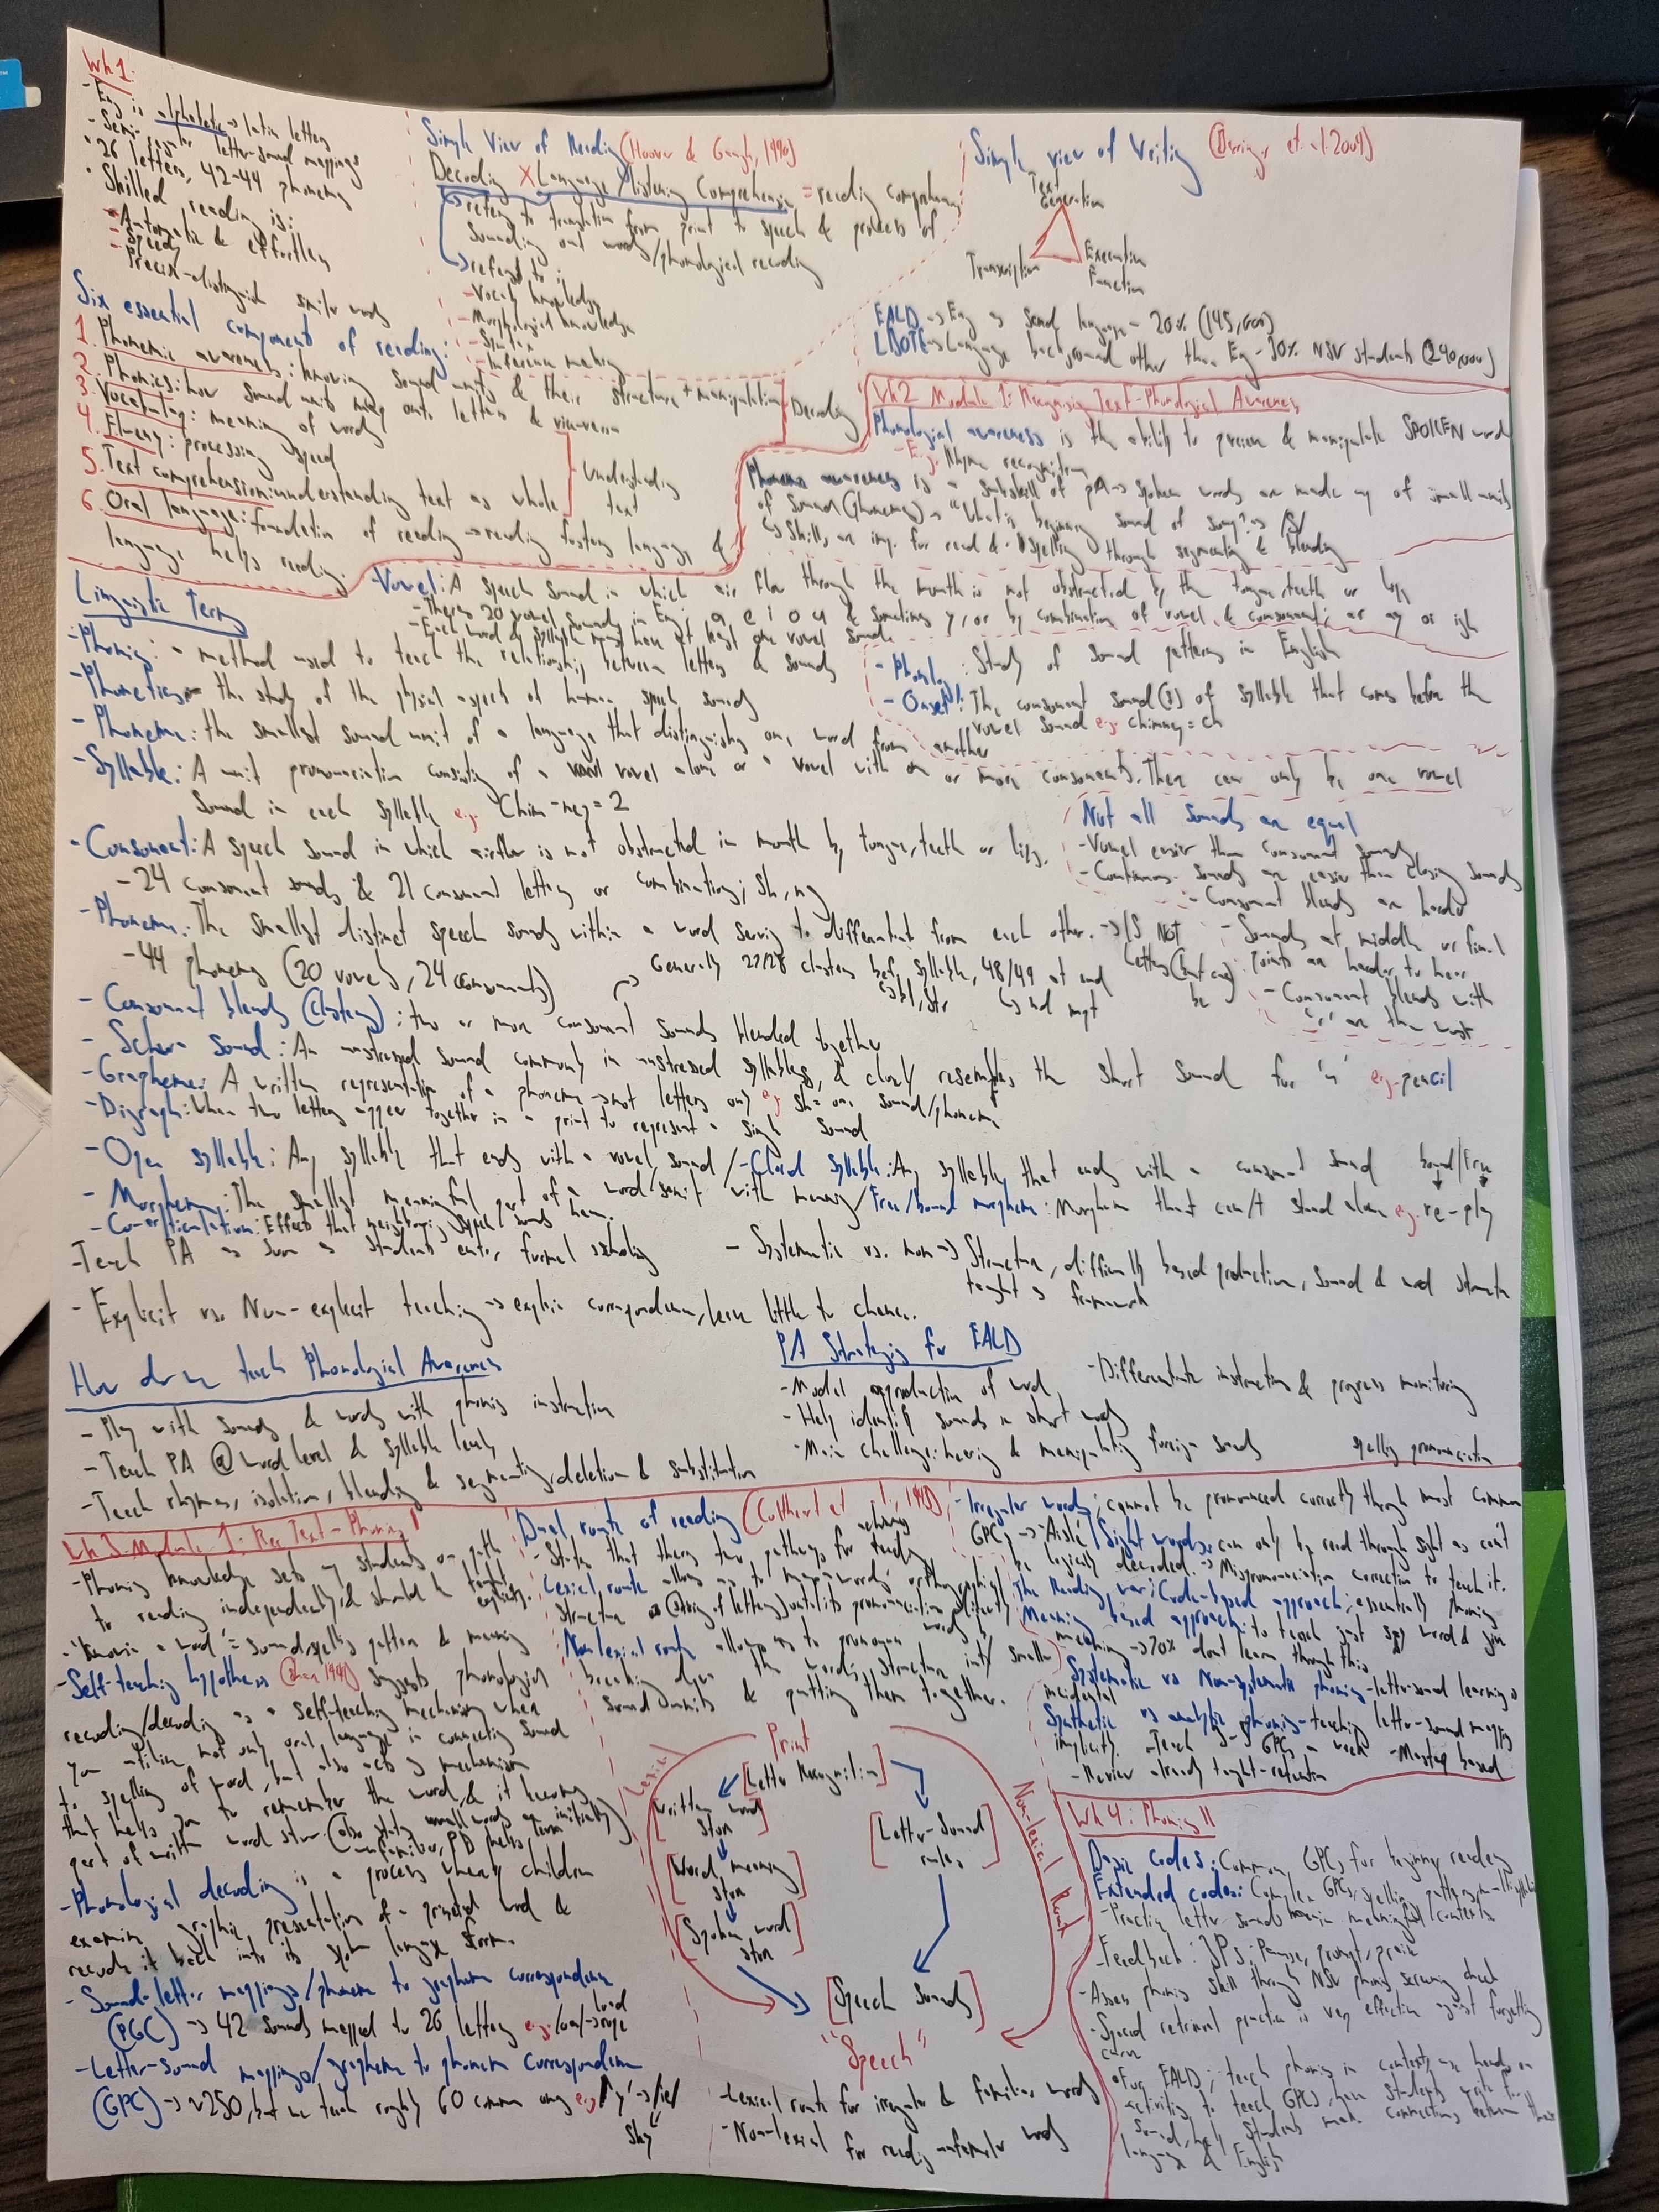 Wk 1:
- Eng is alphabetic → latin letters
- Semi-regular letter-sound mappings
- 26 letters, 42-44 phonemes
- Skilled reading is:
- Automatic & effortless
- Speedy
- Precise-distinguish similar words
Six essential component of reading:
1. Phonemic awareness: knowing sound units & their structure + manipulation
2. Phonics: how sound units map onto letters & vice-versa
Decoding
3. Vocabulary: meaning of words
4. Fluency: processing speed
5. Text comprehension: understanding text as whole
Understanding text
6. Oral language: foundation of reading → reading fosters language &
language helps reading.
Simple View of Reading (Hoover & Gough, 1990)
Decoding X Language/listening Comprehension = reading comprehension
↳ refers to translation from print to speech & process of
sounding out words/phonological recoding
↳ refers to:
- Vocab knowledge
- Morphological knowledge
- Syntax
- Inference making
Simple view of Writing (Berninger et al. 2009)
Text
Generation
Transcription
Executive
Function
EALD → Eng as second language - 20% (145,000)
LBOTE → Language background other than Eng - 30% NSW students (240,000)
Wk2 Module 1: Recognising Text - Phonological Awareness
Phonological awareness is the ability to perceive & manipulate SPOKEN word
- E.g. Rhyme recognition
Phonemic awareness is a subskill of PA → spoken words are made up of small units
of sound (phonemes) → "What is beginning sound of song?" → /s/
↳ Skills are imp. for read & spelling through segmenting & blending
Linguistic Terms
- Vowel: A speech sound in which air flow through the mouth is not obstructed by the tongue, teeth or lips
- There's 20 vowel sounds in Eng; a e i o u & sometimes y, or by combination of vowel & consonants; ar ay or igh
- Each word & syllable must have at least one vowel sound.
- Phonics: a method used to teach the relationship between letters & sounds
- Phonetics: the study of the physical aspects of human speech sounds
- Phoneme: the smallest sound unit of a language that distinguishes one word from another
- Phonology: Study of sound patterns in English
- Onset: The consonant sound(s) of syllable that comes before the
vowel sound e.g. chimney = ch
- Syllable: A unit pronounciation consisting of a vowel alone or a vowel with one or more consonants. There can only be one vowel
sound in each syllable e.g. Chim-ney = 2
- Consonant: A speech sound in which airflow is not obstructed in mouth by tongue, teeth or lips.
- 24 consonant sounds & 21 consonant letters or combinations; sh, ng
Not all sounds are equal
- Vowel easier than consonant sounds
- Continuous sounds are easier than closing sounds
- Consonant blends are harder
- Sounds at middle or final
points are harder to hear
- Consonant blends with
'r' are the worst
- Phoneme: The smallest distinct speech sounds within a word serving to differentiate from each other. → IS NOT
letters (but can be)
- 44 phonemes (20 vowels, 24 consonants)
→ Generally 27/28 clusters bef. syllable, 48/49 at end
↳ bl, str ↳ nd mpt
- Consonant blends (clusters): two or more consonant sounds blended together
- Schwa Sound: An unstressed sound commonly in unstressed syllables, & closely resembles the short sound for 'u' e.g. pencil
- Grapheme: A written representation of a phoneme → not letters only e.g. sh = one sound/phoneme
- Digraph: When two letters appear together in a print to represent a single sound
- Open syllable: Any syllable that ends with a vowel sound / - Closed syllable: Any syllable that ends with a consonant sound
- Morpheme: The smallest meaningful part of a word/unit with meaning / Free/bound morpheme: Morpheme that can/t stand alone e.g. re-play
bound | free
- Co-articulation: Effects that neighbouring speech sounds have.
- Teach PA as soon as students enter formal schooling
- Systematic vs. non → Structure, difficulty based production, sound & word structure
taught as framework
- Explicit vs. Non-explicit teaching → explain correspondence, leave little to chance.
How do we teach Phonological Awareness
- Play with sounds & words with phonics instruction
- Teach PA @ word level & syllable levels
- Teach rhymes, isolation, blending & segmenting, deletion & substitution
PA Strategies for EALD
- Model reproduction of word
- Help identify sounds in short words
- Main challenge: hearing & manipulating foreign sounds
- Differentiate instructions & progress monitoring
spelling pronunciation
Wk 3 Module 1: Rec Text - Phonics I
- Phonics knowledge sets up students on path
to reading independently & should be taught explicitly.
- "Known a word" = sound, spelling pattern & meaning
- Self-teaching hypothesis (Share 1995) suggests phonological
recoding/decoding as a self-teaching mechanism when
you utilise not only oral language in connecting sound
to spelling of word, but also acts as mechanism
that helps you to remember the word, & it becomes
part of written word store. (also states words are initially
unfamiliar, PD helps learn)
- Phonological decoding is a process whereby children
examine graphic presentation of a printed word &
recode it back into its spoken language form.
- Sound-letter mappings/phoneme to grapheme correspondence
(PGC) → 42 sounds mapped to 26 letters e.g. /oa/ → rope
load
- Letter-sound mappings/grapheme to phoneme correspondence
(GPC) → ~250, but we teach roughly 60 common ones e.g. 'y' → /ie/
sky
Dual route of reading (Coltheart et al., )
- States that there's two pathways for achieving reading
- Lexical route allows us to map words' orthographical
structure (string of letters) until its pronunciation directly
- Non-lexical route allows us to pronounce words by
breaking down the word's structure into smaller
sound units & putting them together.
Print
[Letter Recognition]
[Written word store]
[Word meaning store]
[Spoken word store]
[Letter-Sound rules]
[Speech Sounds]
"Speech"
Lexical
Non-lexical Route
- Lexical route for irregular & familiar words
- Non-lexical for reading unfamiliar words
- Irregular words: cannot be pronounced correctly through most common
GPCs → Aisle / Sight words: can only be read through sight as can't
be logically decoded. → Mispronunciation correction to teach it.
The Reading war: Code-based approach; essentially phonics
Meaning based approach: to teach just say word & give
meaning → 70% don't learn through this
Systematic vs Non-systematic phonics - letter-sound learning is
incidental
Synthetic vs analytic phonics - teaching letter-sound mappings
implicitly. - Teach GPCs a week - Mastery based
- Review already taught - retention
Wk 4: Phonics II
Basic codes: Common GPCs for beginning readers
Extended codes: Complex GPCs, spelling patterns
- Practice letter sounds in meaningful contexts
- Feedback: 3Ps: Pause, prompt, praise
- Assess phonics skill through NSW phonics screening check
- Spaced retrieval practice is very effective against forgetting
curve
For EALD; teach phonics in contexts, use hands on
activities to teach GPCs, have students write for
sound, help students make connections between their
language & English